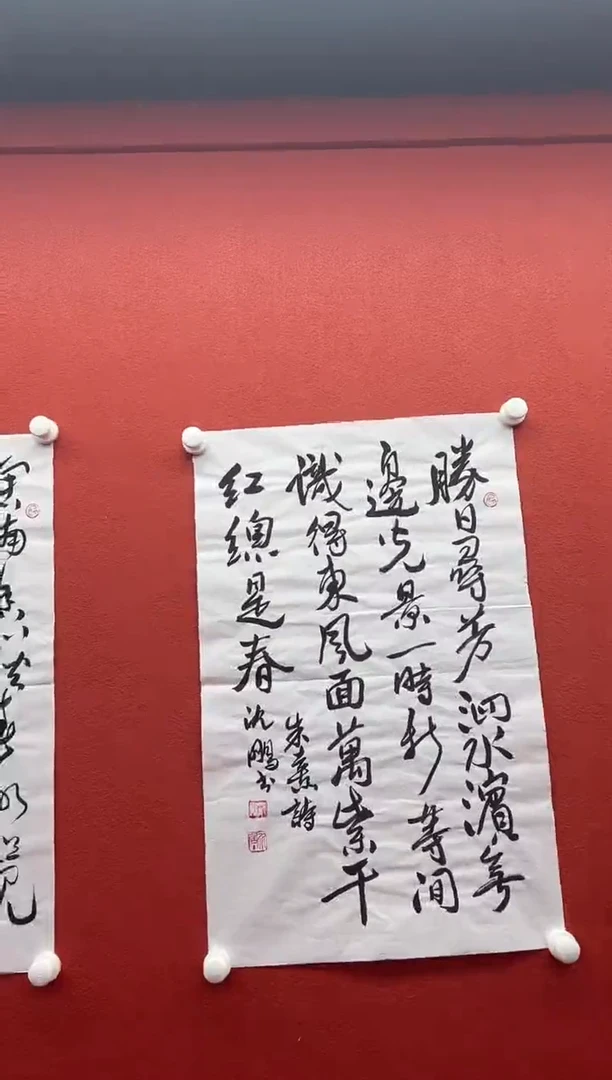 勝日尋芳泗水濱無
邊光景一時新等間
識得東風面萬紫千
紅總是春
朱熹詩
沈鵬书